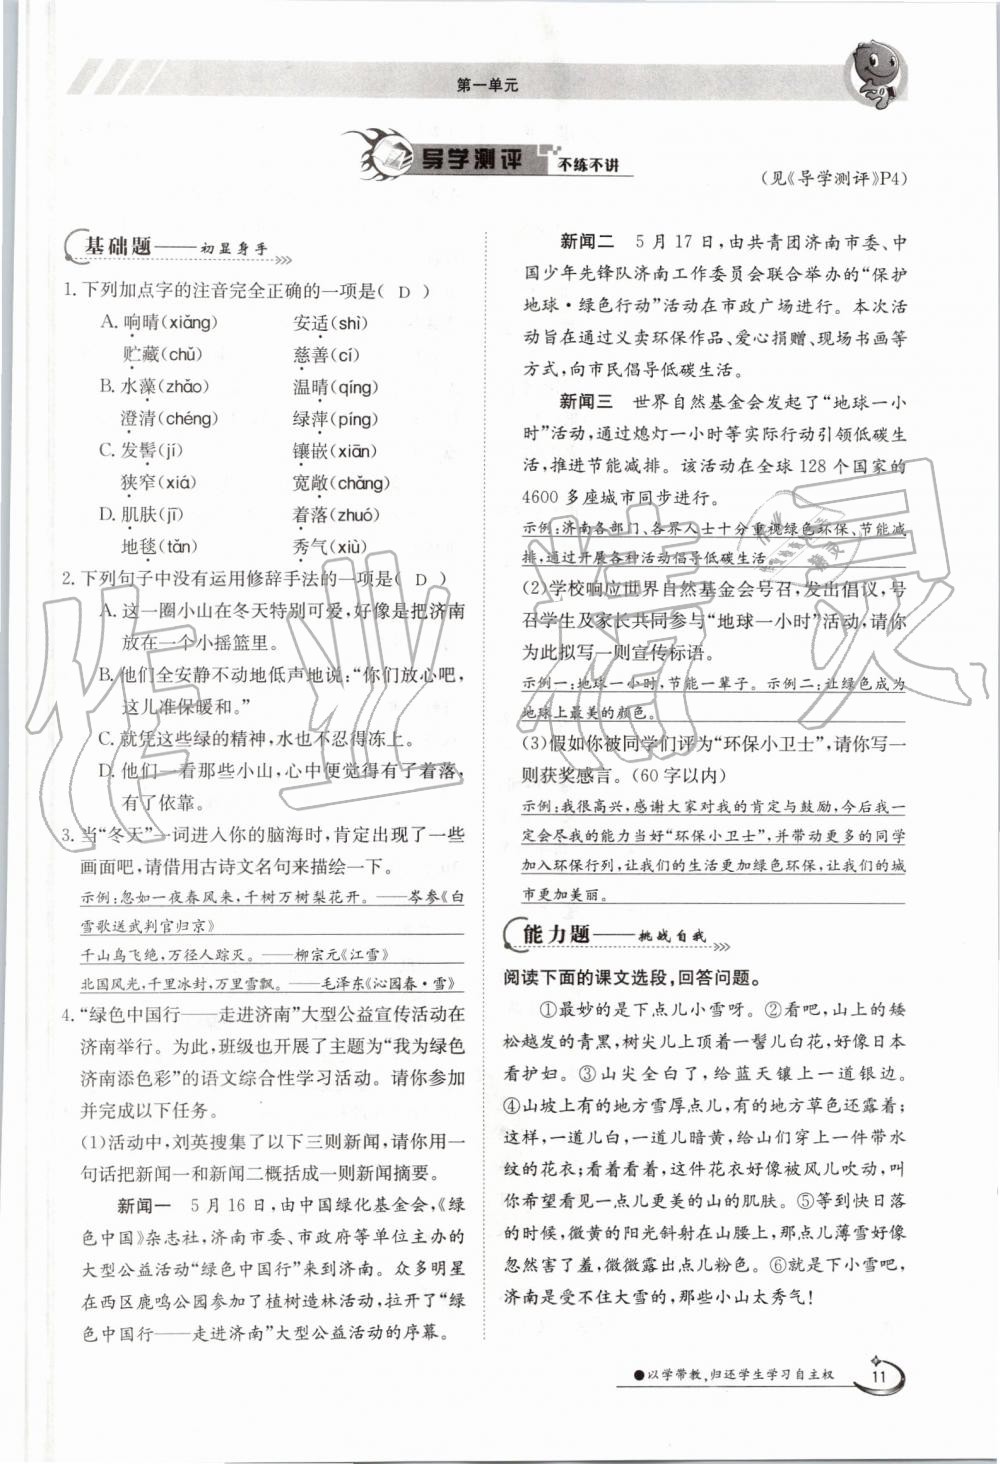 第一单元
导学测评 不练不讲
(见《导学测评》P4)
基础题——初显身手
1.下列加点字的注音完全正确的一项是( D )
A.响晴(xiǎng) 安适(shì)
贮藏(chǔ) 慈善(cí)
B.水藻(zhǎo) 温晴(qíng)
澄清(chéng) 绿萍(píng)
C.发髻(jí) 镶嵌(xiān)
狭窄(xiá) 宽敞(chǎng)
D.肌肤(jī) 着落(zhuó)
地毯(tǎn) 秀气(xiù)
2.下列句子中没有运用修辞手法的一项是( D )
A.这一圈小山在冬天特别可爱,好像是把济南
放在一个小摇篮里。
B.他们全安静不动地低声地说:“你们放心吧,
这儿准保暖和。”
C.就凭这些绿的精神,水也不忍得冻上。
D.他们一看那些小山,心中便觉得有了着落,
有了依靠。
3.当“冬天”一词进入你的脑海时,肯定出现了一些
画面吧,请借用古诗文名句来描绘一下。
示例:忽如一夜春风来,千树万树梨花开。——岑参《白
雪歌送武判官归京》
千山鸟飞绝,万径人踪灭。——柳宗元《江雪》
北国风光,千里冰封,万里雪飘。——毛泽东《沁园春·雪》
4.“绿色中国行——走进济南”大型公益宣传活动在
济南举行。为此,班级也开展了主题为“我为绿色
济南添色彩”的语文综合性学习活动。请你参加
并完成以下任务。
(1)活动中,刘英搜集了以下三则新闻,请你用一
句话把新闻一和新闻二概括成一则新闻摘要。
新闻一 5月16日,由中国绿化基金会,《绿
色中国》杂志社,济南市委、市政府等单位主办的
大型公益活动“绿色中国行”来到济南。众多明星
在西区鹿鸣公园参加了植树造林活动,拉开了“绿
色中国行——走进济南”大型公益活动的序幕。
新闻二 5月17日,由共青团济南市委、中
国少年先锋队济南工作委员会联合举办的“保护
地球·绿色行动”活动在市政广场进行。本次活
动旨在通过义卖环保作品、爱心捐赠、现场书画等
方式,向市民倡导低碳生活。
新闻三 世界自然基金会发起了“地球一小
时”活动,通过熄灯一小时等实际行动引领低碳生
活,推进节能减排。该活动在全球128个国家的
4600多座城市同步进行。
示例:济南各部门、各界人士十分重视绿色环保、节能减
排,通过开展各种活动倡导低碳生活。
(2)学校响应世界自然基金会号召,发出倡议,号
召学生及家长共同参与“地球一小时”活动,请你
为此拟写一则宣传标语。
示例一:地球一小时,节能一辈子。示例二:让绿色成为
地球上最美的颜色。
(3)假如你被同学们评为“环保小卫士”,请你写一
则获奖感言。(60字以内)
示例:我很高兴,感谢大家对我的肯定与鼓励,今后我一
定会尽我的能力当好“环保小卫士”,并带动更多的同学
加入环保行列,让我们的生活更加绿色环保,让我们的城
市更加美丽。
能力题——挑战自我
阅读下面的课文选段,回答问题。
①最妙的是下点儿小雪呀。②看吧,山上的矮
松越发的青黑,树尖儿上顶着一髻儿白花,好像日本
看护妇。③山尖全白了,给蓝天镶上一道银边。
④山坡上,有的地方雪厚点儿,有的地方草色还露着;
这样,一道儿白,一道儿暗黄,给山们穿上一件带水
纹的花衣;看着看着,这件花衣好像被风儿吹动,叫
你希望看见一点儿更美的山的肌肤。⑤等到快日落
的时候,微黄的阳光斜射在山腰上,那点儿薄雪好像
忽然害了羞,微微露出点儿粉色。⑥就是下小雪吧,
济南是受不住大雪的,那些小山太秀气!
●以学带教,归还学生学习自主权
11
作业精灵